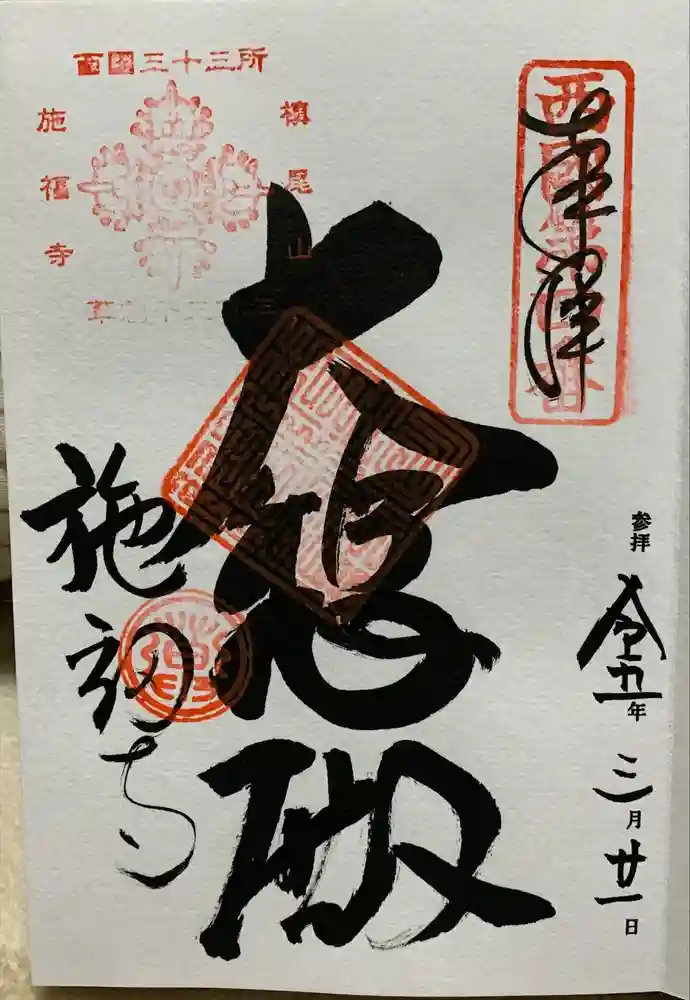 奉拝
西國第四番
参拝 令五年 三月廿一日
大悲殿
施福寺
西国三十三所
槇尾山
施福寺